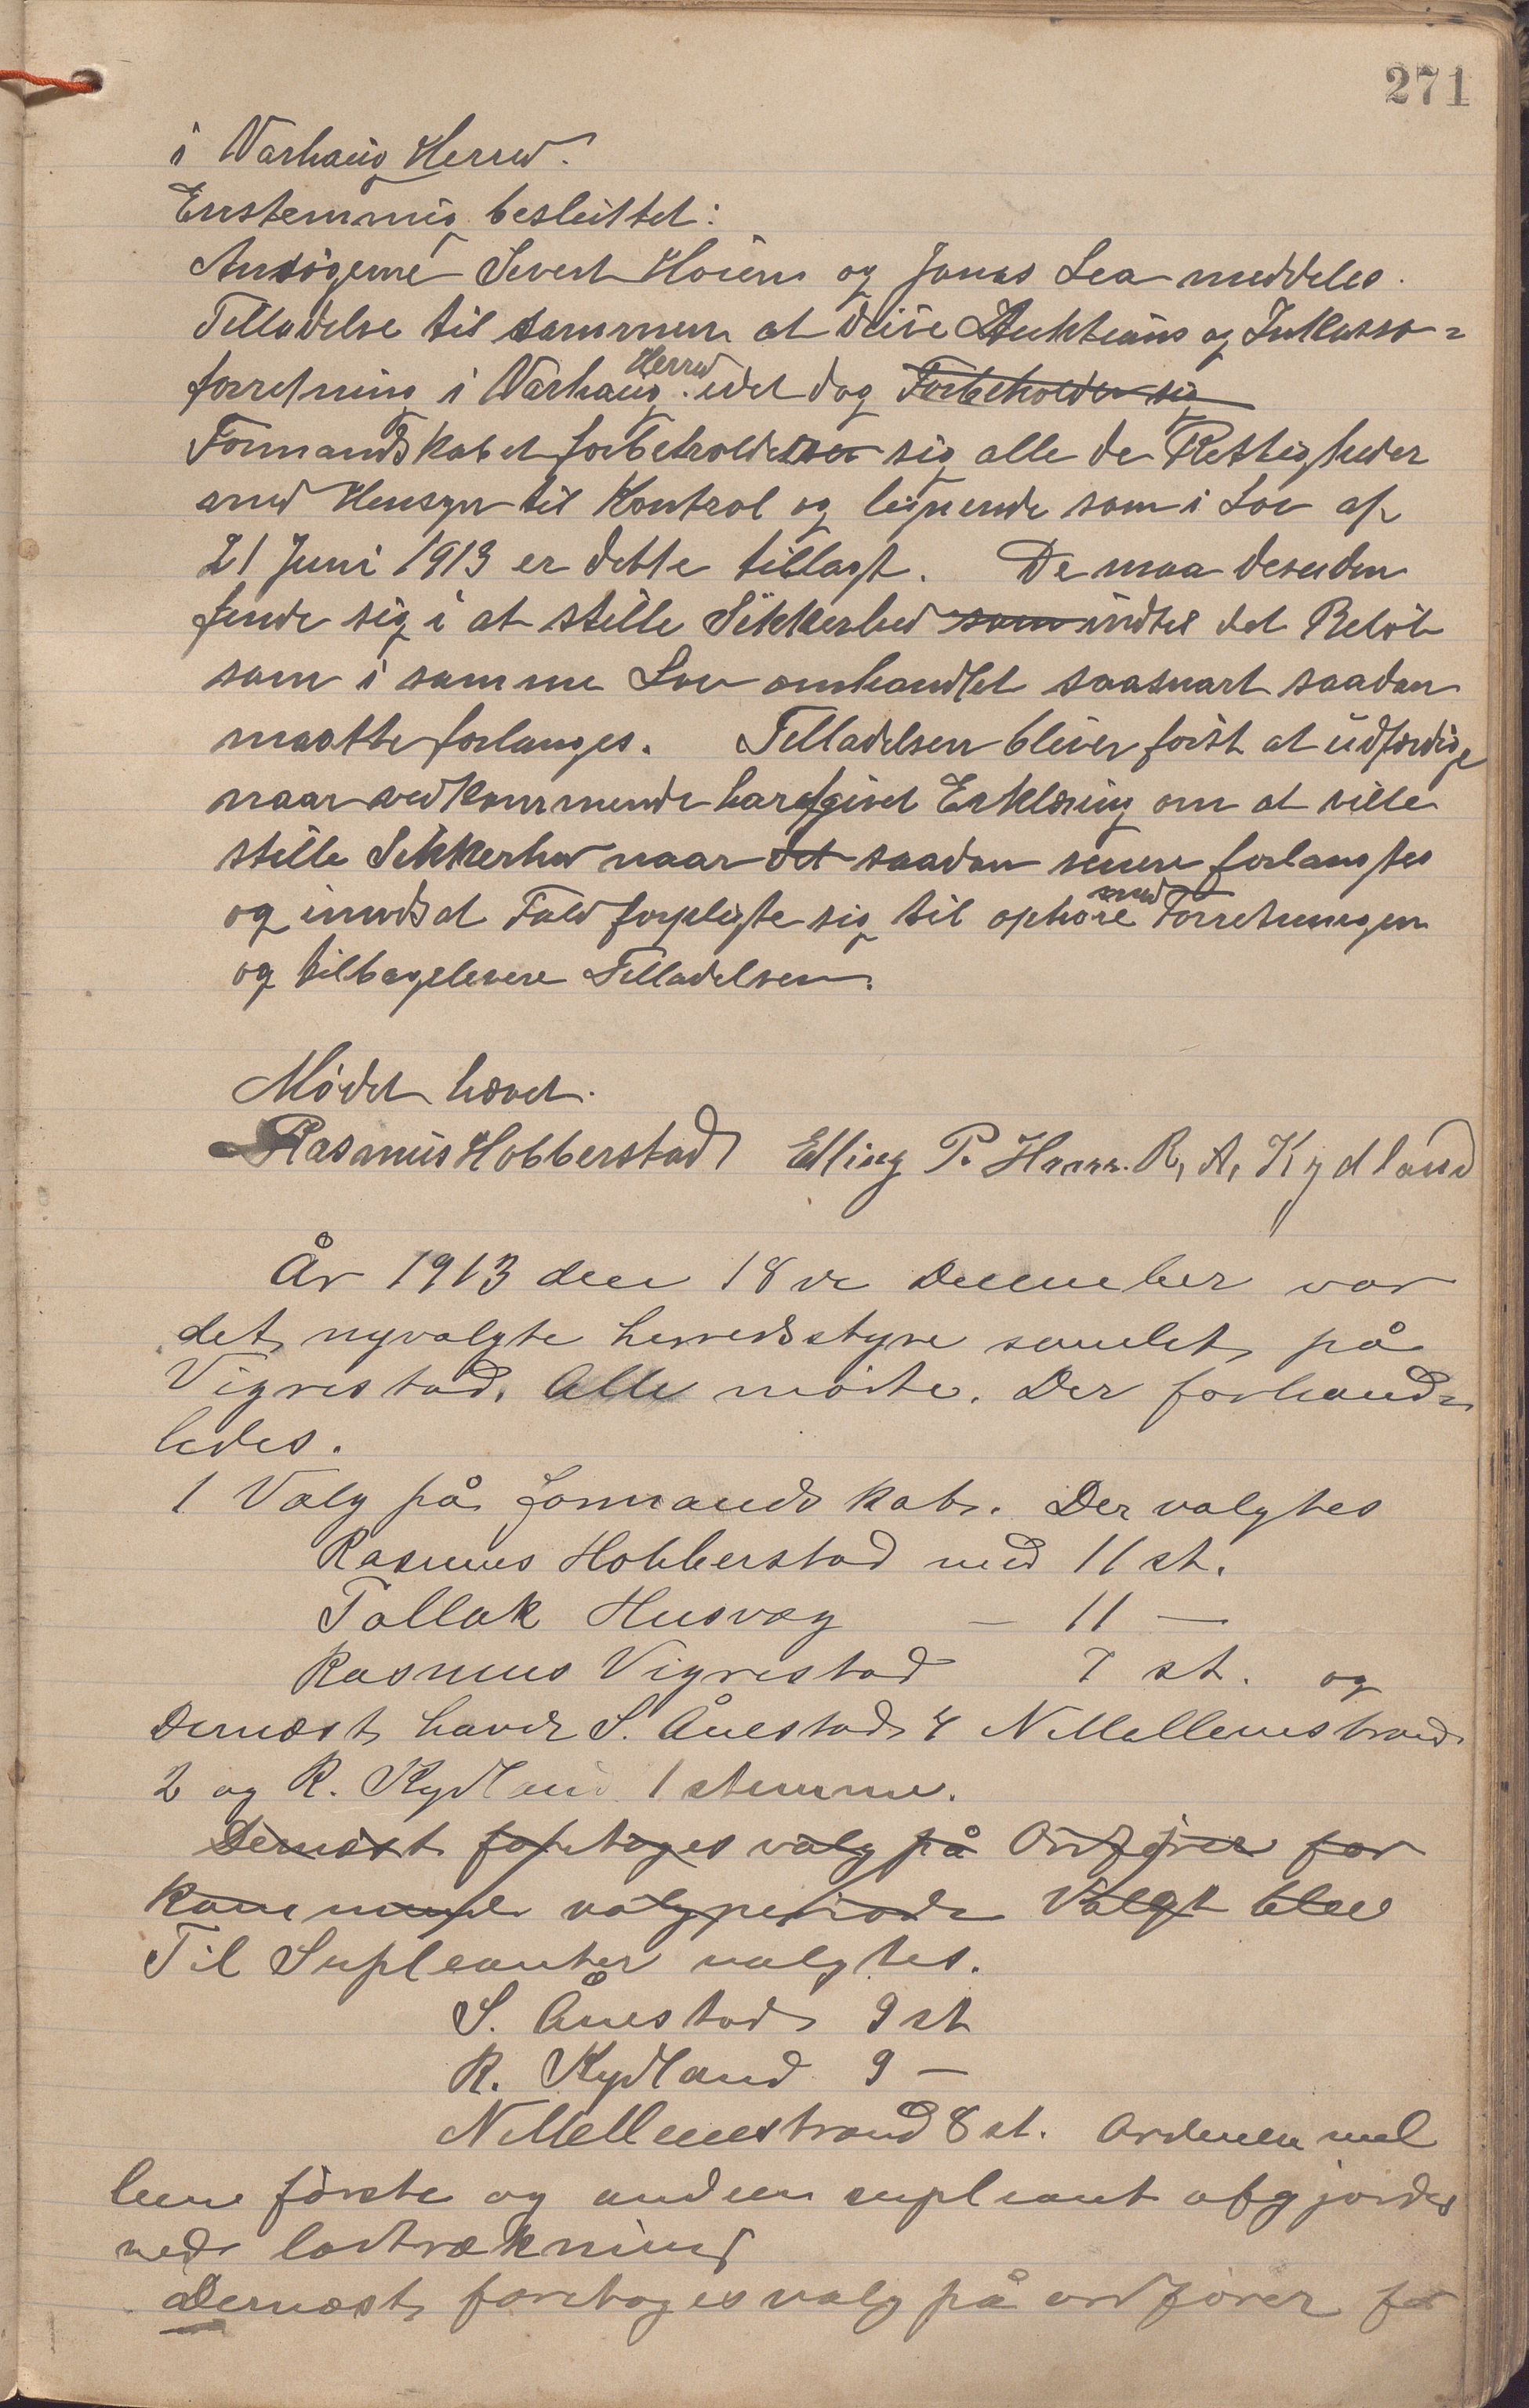 271
i Varhaug Herred.
Enstemmig besluttet:
Ansøgerne Sivert Høien og Jonas Lea meddeles
Tilladelse til sammen at drive Auktions og Inkasso=
forretning i Varhaug Herred. idet dog Forbeholder sig
Formandskabet forbeholder sig alle de Rettigheder
med Hensyn til Kontrol og lignende som i Lov af
21 Juni 1913 er dette tillagt. De maa desuden
finde sig i at stille Sikkerhed som indtil det Beløb
som i samme Lov omhandlet saasnart saadan
maatte forlanges. Tilladelsen bliver først at udfærdige
naar vedkommende har afgivet Erklæring om at ville
stille Sikkerhed naar det saadan senere forlangtes
og i modsat Fald forpligte sig til ophøre med Forretningen
og tilbagelevere Tilladelsen.
Mødet hævet.
Rasmus Hobberstad Elling P. R. A. Kydland
År 1913 den 18de December var
det nyvalgte herredsstyre samlet på
Vigrestad. Alle møtte. Der forhand=
ledes.
1 Valg på formandskab. Der valgtes
Rasmus Hobberstad med 11 st.
Tollak Husvæg — 11 —
Rasmus Vigrestad 7 st. og
Dernæst havde S. Ånestad 4 N Mellemstrand
2 og R. Kydland 1 stemme.
Dernæst foretoges valg på Ordfører for
kommende valgperiode Valgt blev
Til Supleanter valgtes.
S. Ånestad 9 st
R. Kydland 9 —
N Mellemstrand 8 st. Ordenen mel
lem første og anden supleant afgjordes
ved lodtrækning
Dernæst foretoges valg på ordfører for